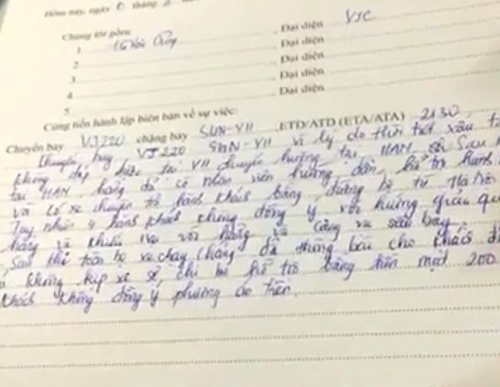 Hôm nay, ngày 6 tháng
Chúng tôi gồm:
1. , Đại diện VSC
2. , Đại diện
3. , Đại diện
4. , Đại diện
5. , Đại diện
Cùng tiến hành lập biên bản về sự việc:
Chuyến bay VJ220 chặng bay SGN-VII ETD/ATD (ETA/ATA) 2130
Chuyến bay VJ220 SGN-VII vì lý do thời tiết xấu
không đáp được tại VII chuyển hướng tại HAN, sau
tại HAN hãng đã có nhân viên hướng dẫn, hỗ trợ hành
và có xe chuyển trở hành khách bằng đường bộ từ Hà Nội
Tuy nhiên 4 hành khách không đồng ý với hướng giải quyết
hãng và khiếu nại với hãng và cảng vụ sân bay.
Sau khi hãng đã thông báo cho khách
không kịp xe sẽ chỉ hỗ trợ bằng tiền mặt 200
khách không đồng ý phương án trên.